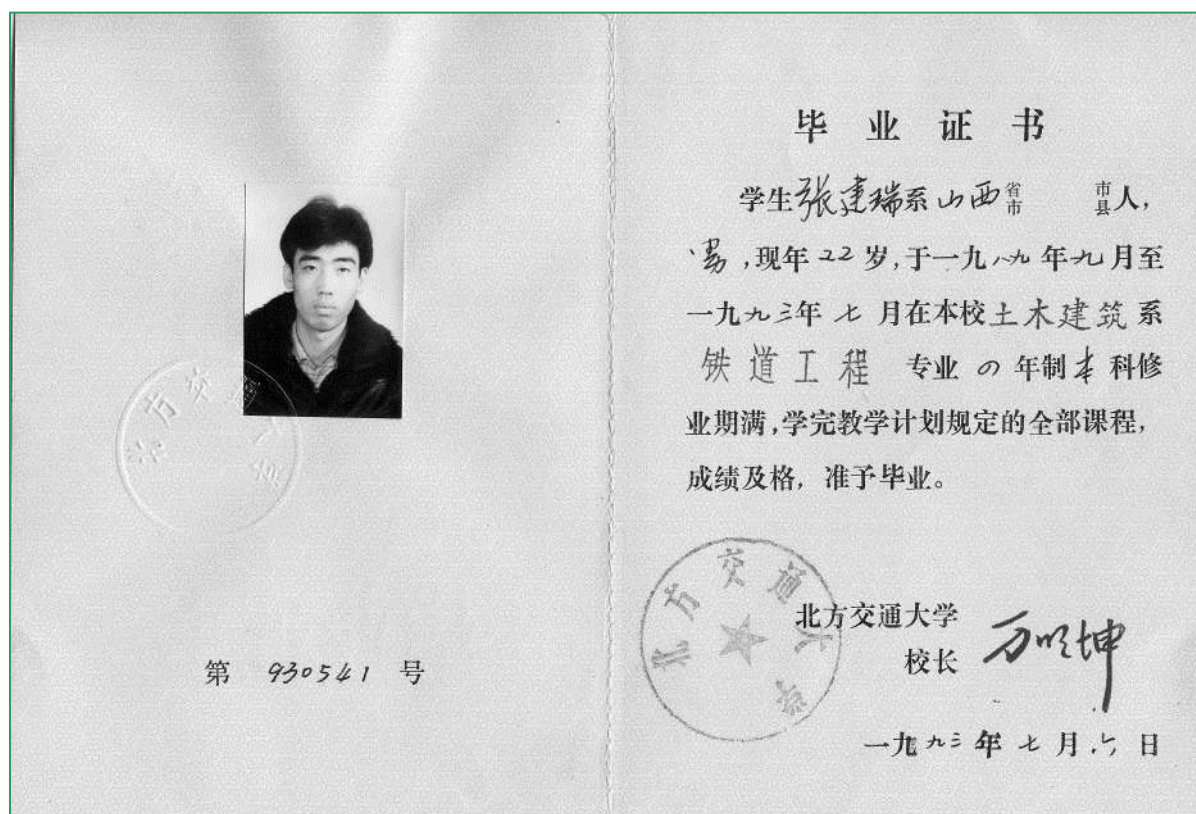 北方交通大学
第 930541 号
毕业证书
学生张建瑞系山西省市 市县人，
男，现年22岁，于一九八九年九月至
一九九三年七月在本校土木建筑系
铁道工程 专业 四 年制本科修
业期满，学完教学计划规定的全部课程，
成绩及格，准予毕业。
北方交通大学
北方交通大学
校长 万明坤
一九九三年七月六日